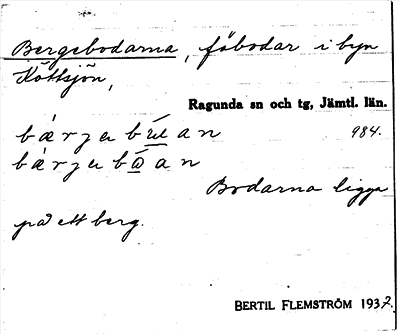 Bergebodarna, fäbodar i byn
Köttsjön,
Ragunda sn och tg, Jämtl. län.
984.
Bodarna ligga
på ett berg.
BERTIL FLEMSTRÖM 1937.